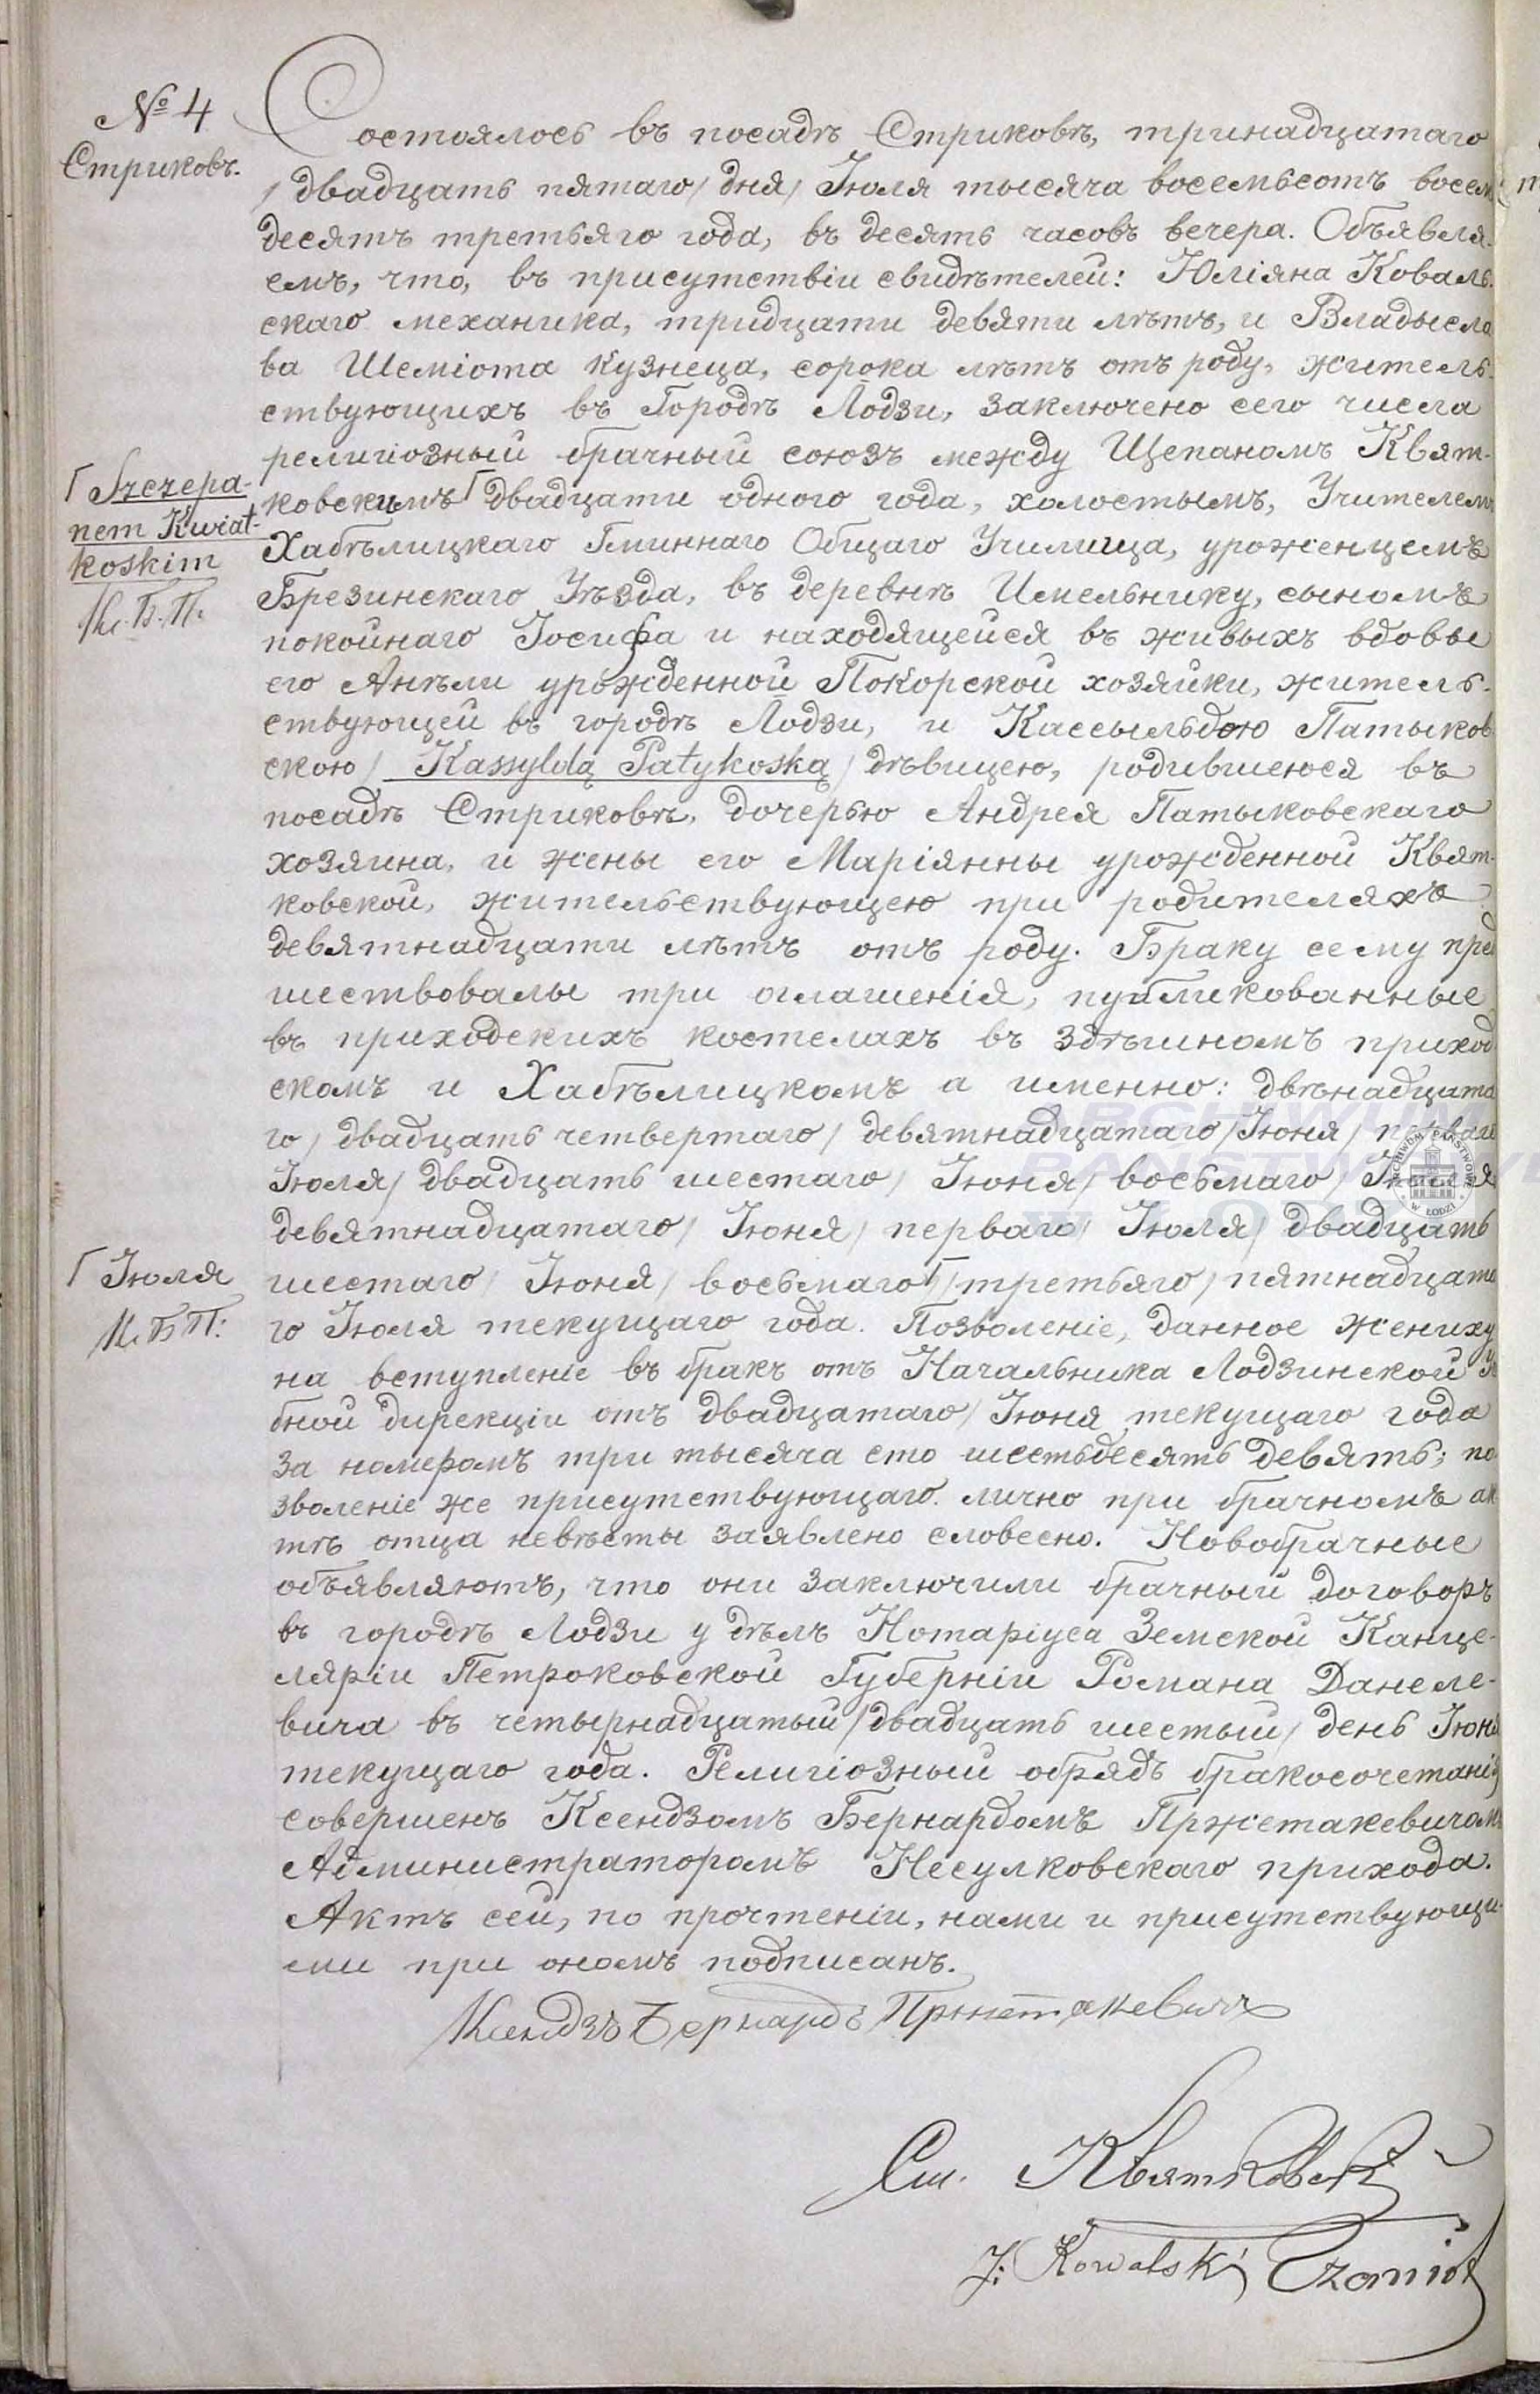 № 4
Стриковъ.
Состоялось въ посадѣ Стриковѣ, тринадцатаго
/ двадцать пятаго / дня / Іюля тысяча восемьсотъ восем
десятъ третьяго года, въ десять часовъ вечера. Объявля-
емъ, что, въ присутствіи свидѣтелей: Юліяна Коваль-
скаго механика, тридцати девяти лѣтъ, и Владысла
ва Шеміота кузнеца, сорока лѣтъ отъ роду, житель-
ствующихъ въ Городѣ Лодзи, заключено сего числа
религіозный брачный союзъ между Щепаномъ Квят-
Г Szczepa-
nem Kwiat-
koskim
К. Б. П.
ковскимъ Г двадцати одного года, холостымъ, Учителемъ
Хабѣлицкаго Гминнаго Общаго Училища, уроженцемъ
Брезинскаго Уѣзда, въ деревнѣ Имельнику, сыномъ
покойнаго Іосифа и находящейся въ живыхъ вдовы
его Анѣли урожденной Покорской хозяйки, житель-
ствующей въ городѣ Лодзи, и Кассыльдою Патыков
скою / Kassyldą Patykoską / дѣвицею, родившеюся въ
посадѣ Стриковѣ, дочерью Андрея Патыковскаго
хозяина, и жены его Маріянны урожденной Квят-
ковской, жительствующею при родителяхъ
девятнадцати лѣтъ отъ роду. Браку сему пред
шествовалы три оглашенія, публикованные
въ приходскихъ костелахъ въ здѣшномъ приход
скомъ и Хабѣлицкомъ а именно: двѣнадцата
го / двадцать четвертаго / девятнадцатаго / Іюня / перваго
Іюля / двадцать шестаго / Іюня / восьмаго / Іюля
девятнадцатаго / Іюня / перваго / Іюля / двадцать
Г Іюля
К. Б. П.
шестаго / Іюня / восьмаго Г / третьяго / пятнадцата
го Іюля текущаго года. Позволеніе, данное жениху
на вступленіе въ бракъ отъ Начальника Лодзинской Уче
бной дирекціи отъ двадцатаго / Іюня текущаго года
за номеромъ три тысяча сто шестьдесять девять; по
зволеніе же присутствующаго лично при брачномъ ак
тѣ отца невѣсты заявлено словесно. Новобрачные
объявляютъ, что они заключили брачный договоръ
въ городѣ Лодзи у дѣлъ Нотаріуса Земской Канце-
ляріи Петроковской Губерніи Романа Данеле-
вича въ четырнадцатый / двадцать шестый / день Іюня
текущаго года. Религіозный обрядъ бракосочетанія
совершенъ Ксендзомъ Бернардомъ Пржетакевичомъ
Администраторомъ Несулковскаго прихода.
Актъ сей, по прочтеніи, нами и присутствующи-
ми при ономъ подписанъ.
Ксендзъ Бернардъ Пржетакевичъ
Квятковскі
J. Kowalski Szamiot
ARCHIWUM
PAŃSTWOWE
W ŁODZI